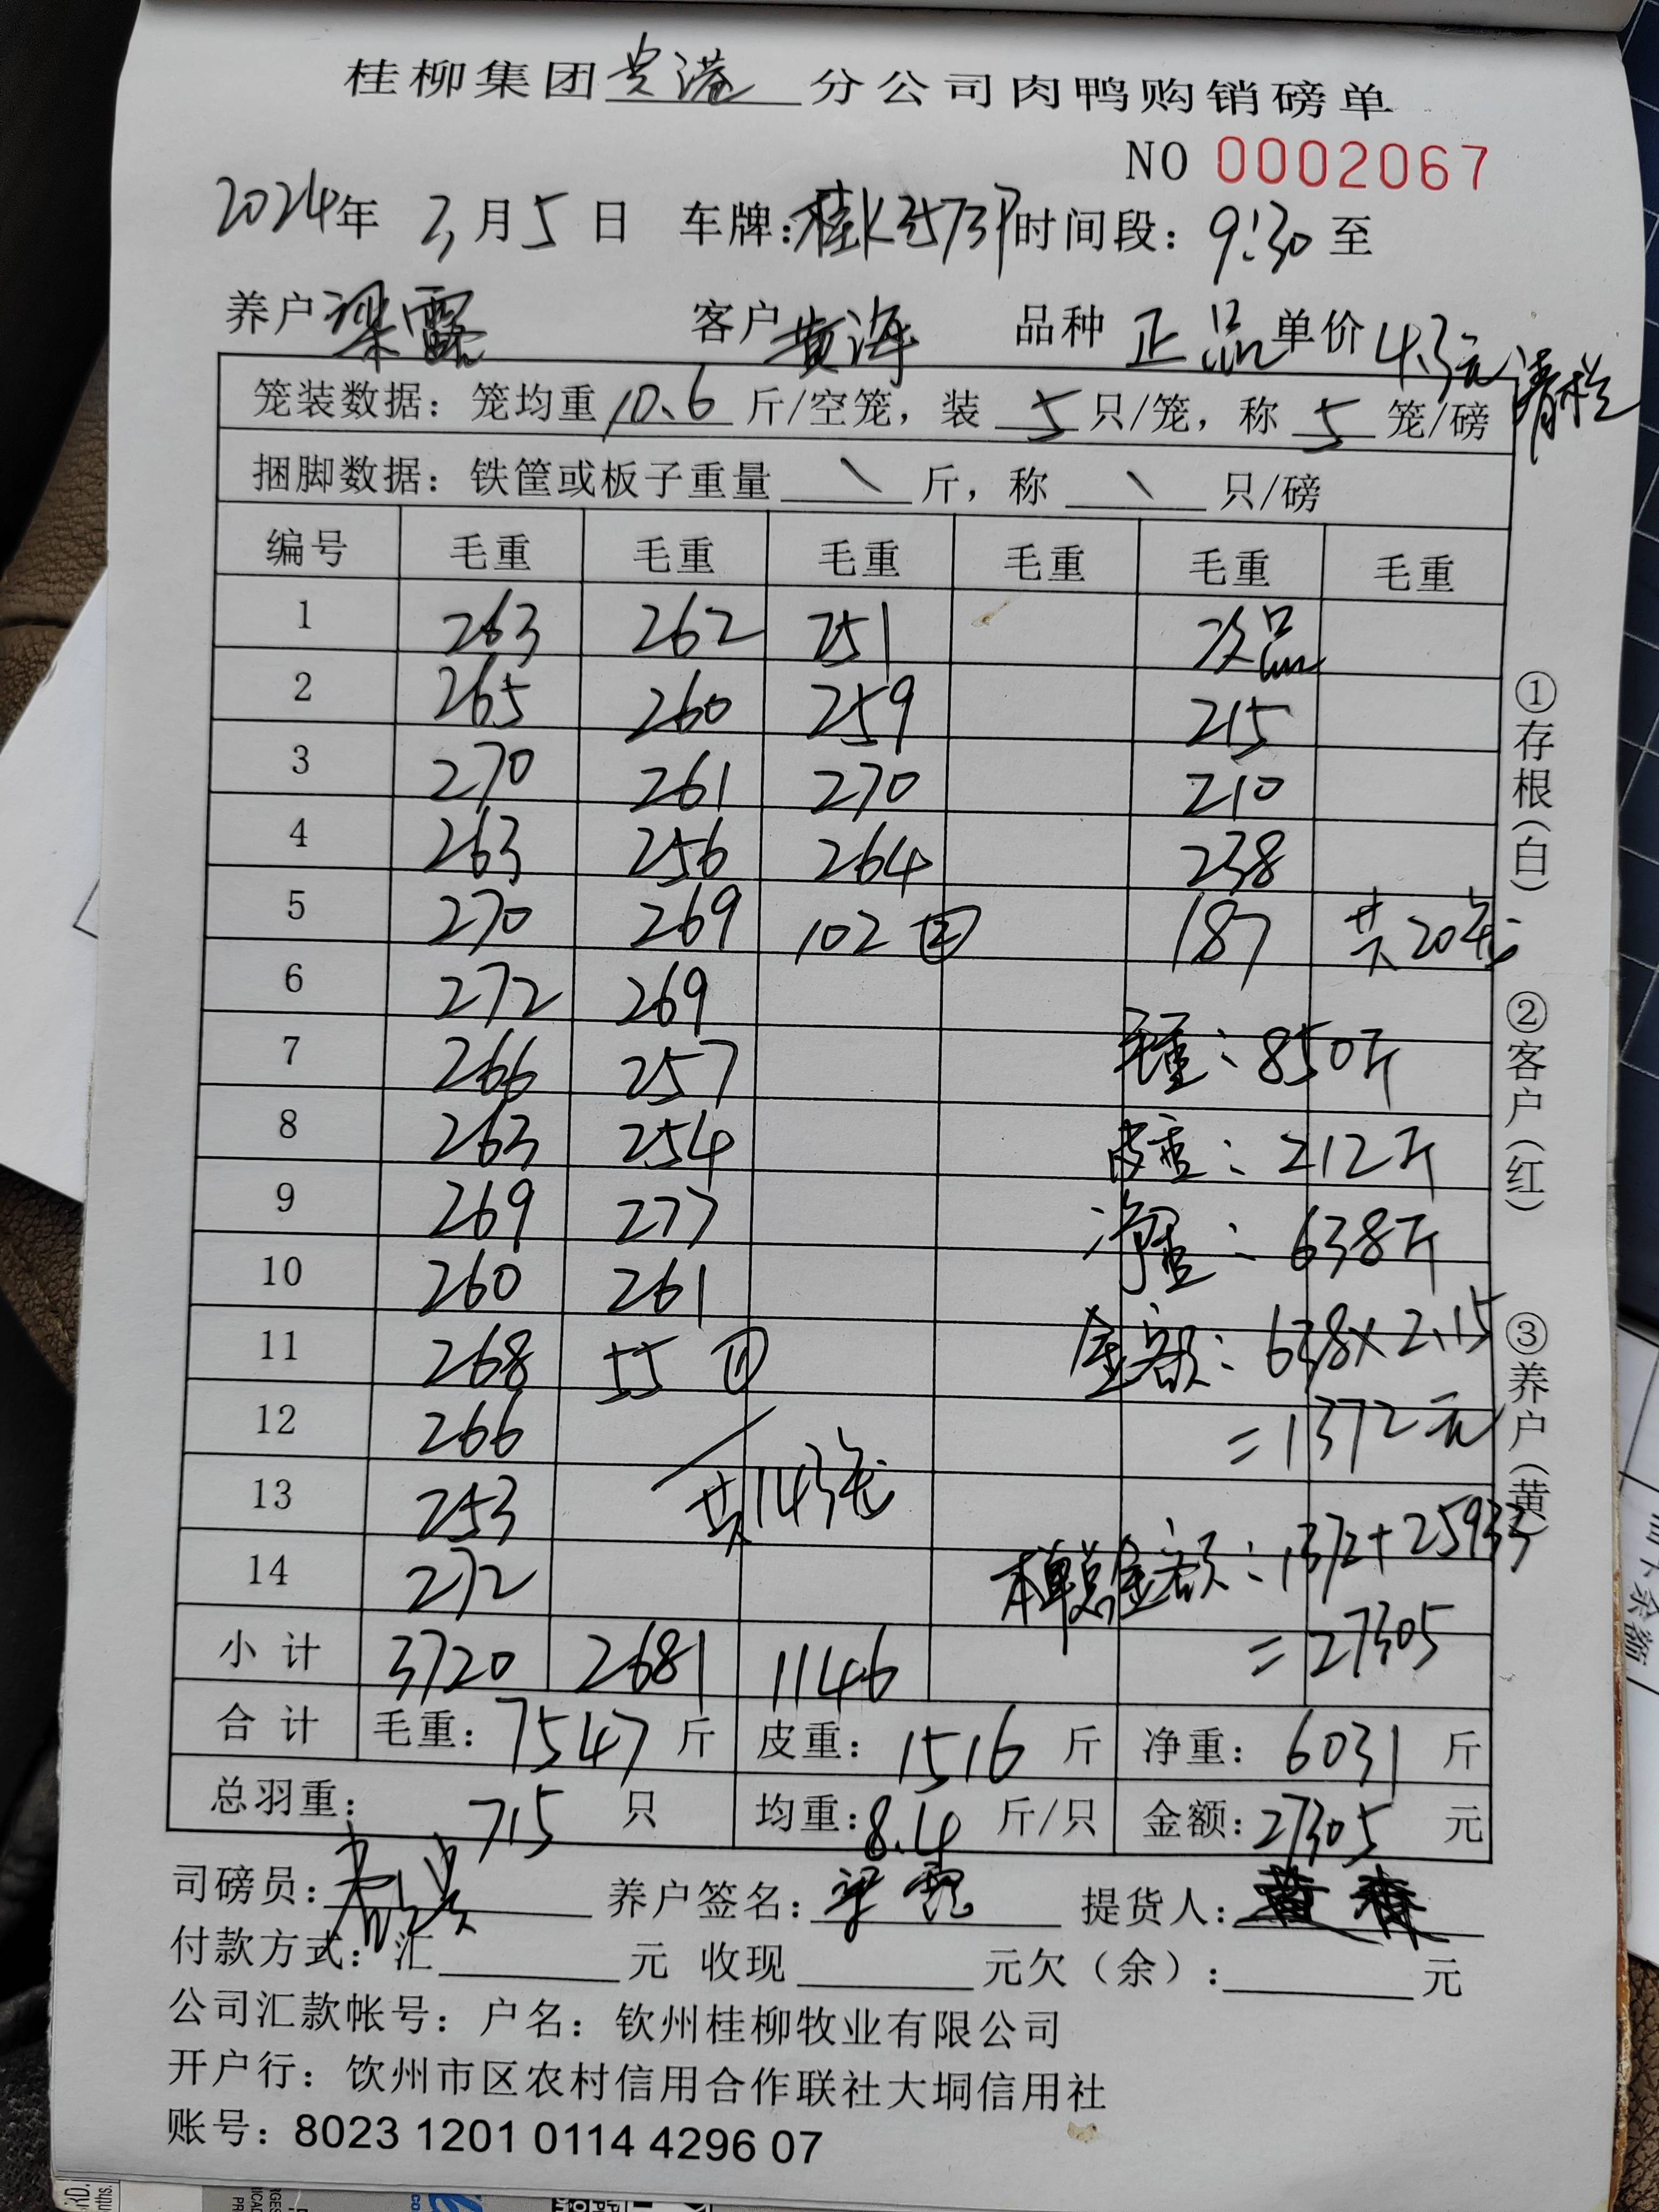 桂柳集团贵港分公司肉鸭购销磅单
NO 0002067
2024年 3月5日 车牌:桂K3573P时间段:9:30至
养户梁露 客户黄海 品种 正品 单价4.3元清栏
笼装数据:笼均重10.6斤/空笼,装 5只/笼,称 5 笼/磅
捆脚数据:铁筐或板子重量 \ 斤,称 \ 只/磅
编号 毛重 毛重 毛重 毛重 毛重 毛重
1 263 262 251 次品
2 265 260 259 215
3 270 261 270 210
4 263 256 264 238
5 270 269 102 ② 187 共20笼
6 272 269
7 266 257 毛重:850斤
8 263 254 皮重:212斤
9 269 277 净重:638斤
10 260 261
11 268 55 ① 金额:638×2.15
12 266 =1372元
13 253 共143笼
14 272 本单总金额:1372+25933
小计 3720 2681 1146 =27305
合计 毛重:7547斤 皮重:1516斤 净重:6031斤
总羽重:715只 均重:8.4斤/只 金额:27305元
司磅员: 养户签名:梁露 提货人:
付款方式:汇 元 收现 元欠(余): 元
公司汇款帐号:户名:钦州桂柳牧业有限公司
开户行:钦州市区农村信用合作联社大垌信用社
账号:8023 1201 0114 4296 07
①存根(白) ②客户(红) ③养户(黄)